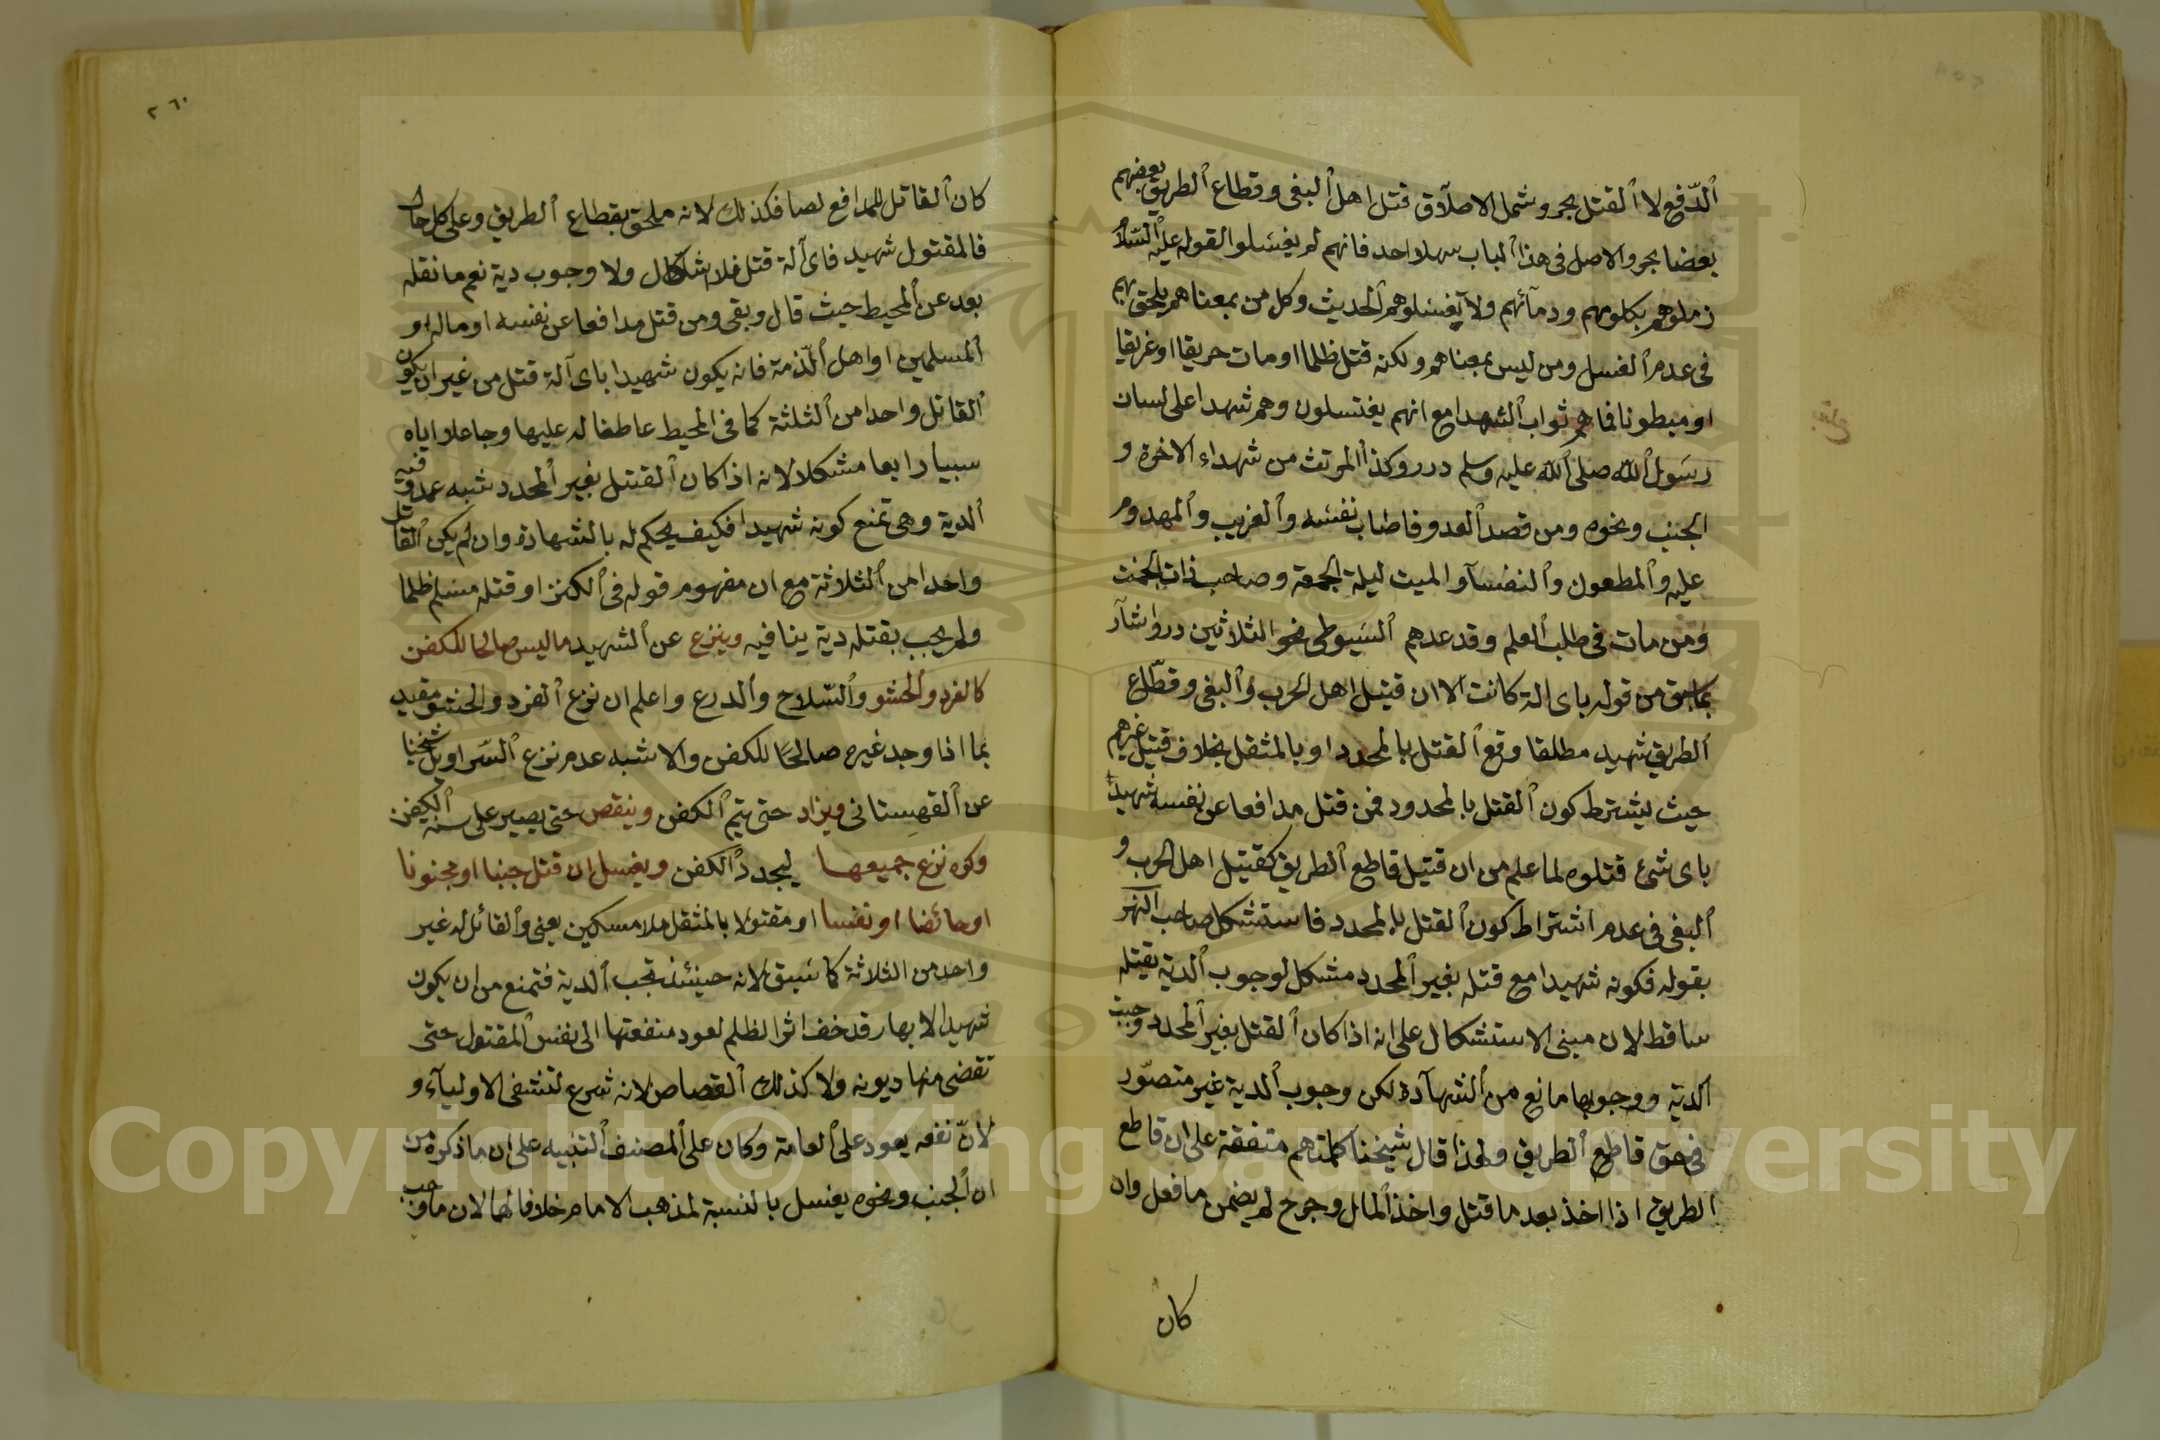 الدفع لا القتل بحر وشمل الاطلاق قتل اهل البغى وقطاع الطريق بعضهم
بعضا بحر والاصل فى هذا الباب شهدا احد فانهم لم يغسلوا لقوله عليه السلام
زملوهم بكلومهم ودمآئهم ولا تغسلوهم الحديث وكل من بمعناهم يلحق بهم
فى عدم الغسل ومن ليس بمعناهم ولكنه قتل ظلما او مات حريقا او غريقا
او مبطونا فلهم ثواب الشهدا مع انهم يغتسلون وهم شهدا على لسان
رسول الله صلى الله عليه وسلم درر وكذا المرتث من شهداء الاخرة و
الجنب ونحوه ومن قصد العدو فاصاب نفسه والغريب والمهدوم
عليه والمطعون والنفسآ والميت ليلة الجمعة وصاحب ذات الجنب
ومن مات فى طلب العلم وقد عدهم السيوطى نحو الثلاثين در واشار
بما سبق من قوله باى الة كانت الا ان قتيل اهل الحرب والبغى وقطاع
الطريق شهيد مطلقا وقع القتل بالمحدد او بالمثقل بخلاف قتيل غيرهم
حيث يشترط كون القتل بالمحدد فمن قتل مدافعا عن نفسه شهيد
باى شئ قتلوه لما علم من ان قتيل قاطع الطريق كقتيل اهل الحرب و
البغى فى عدم اشتراط كون القتل بالمحدد فاستشكل صاحب النهر
بقوله فكونه شهيدا مع قتله بغير المحدد مشكل لوجوب الدية بقتله
ساقط لان مبنى الاستشكال على انه اذا كان القتل بغير المحدد وجبت
الدية ووجوبها مانع من الشهآدة لكن وجوب الدية غير متصور
فى حق قاطع الطريق ولهذا قال شيخنا كلمتهم متفقة على ان قاطع
الطريق اذا اخذ بعد ما قتل واخذ المال وجرح لم يضمن ما فعل وان
كان
٢٦٠
كان القاتل للمدافع لصا فكذلك لانه ملحق بقطاع الطريق وعلى كل حال
فالمقتول شهيد فاى آلة قتل فلا اشكال ولا وجوب دية نعم ما نقله
بعد عن المحيط حيث قال وبقى ومن قتل مدافعا عن نفسه او ماله او
المسلمين او اهل الذمة فانه يكون شهيدا باى آلة قتل من غير ان يكون
القاتل واحدا من الثلثة كما فى المحيط عاطفا له عليها وجاعلا اياه
سببا رابعا مشكل لانه اذا كان القتل بغير المحدد شبه عمد وفيه
الدية وهى تمنع كونه شهيدا فكيف يحكم له بالشهادة وان لم يكن القاتل
واحدا من الثلاثة مع ان مفهوم قوله فى الكنز او قتله مسلم ظلما
ولم يجب بقتله دية ينافيه وينزع عن الشهيد ما ليس صالحا للكفن
كالفرو والحشو والسلاح والدرع واعلم ان نزع الفرو والحشو مقيد
بما اذا وجد غيره صالحا للكفن والاشبه عدم نزع السراويل شيخنا
عن القهستانى ويزاد حتى يتم الكفن وينقص حتى يصير على سنة الكفن
وكره نزع جميعها ليجدد الكفن ويغسل ان قتل جنبا او مجنونا
او حائضا او نفسا او مقتولا بالمثقل ملا مسكين يعنى والقاتل له غير
واحد من الثلاثة كما سبق لانه حينئذ تجب الدية فتمنع من ان يكون
شهيدا لا بها قد خف اثر الظلم لعود منفعتها الى نفس المقتول حتى
تقضى منها ديونه ولا كذلك القصاص لانه شرع لتشفى الاوليآء و
لان نفعه يعود على العامة وكان على المصنف التنبيه على ان ما ذكره من
ان الجنب ونحوه يغسل بالنسبة لمذهب الامام خلافا لهما لان ما وجب